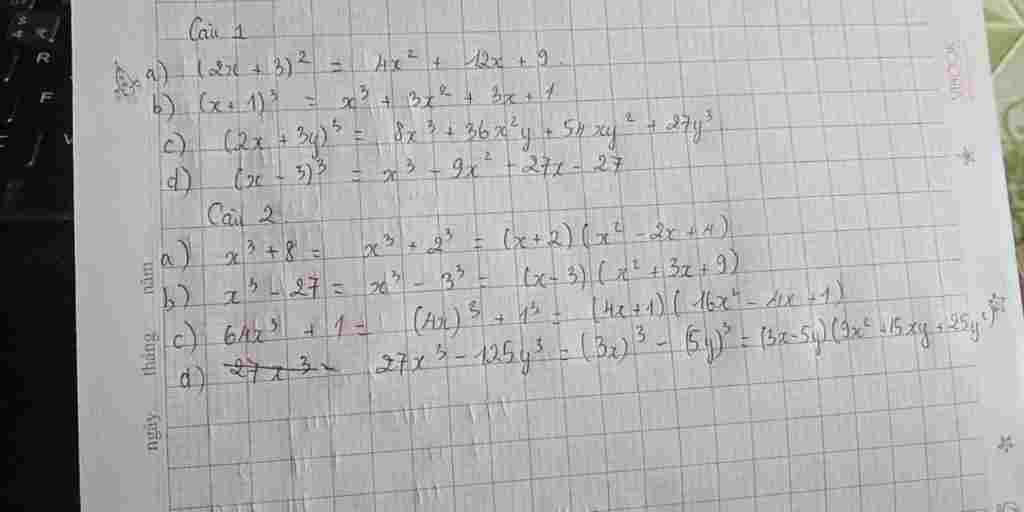 Câu 1
a) (2x + 3)² = 4x² + 12x + 9.
b) (x + 1)³ = x³ + 3x² + 3x + 1
c) (2x + 3y)³ = 8x³ + 36x²y + 54xy² + 27y³
d) (x - 3)³ = x³ - 9x² + 27x - 27
Câu 2
a) x³ + 8 = x³ + 2³ = (x+2)(x² - 2x + 4)
b) x³ - 27 = x³ - 3³ = (x-3)(x² + 3x + 9)
c) 64x³ + 1 = (4x)³ + 1³ = (4x+1)(16x² - 4x + 1)
d) 27x³ - 27x³ - 125y³ = (3x)³ - (5y)³ = (3x-5y)(9x² + 15xy + 25y²)
ngày tháng năm
R
F
V